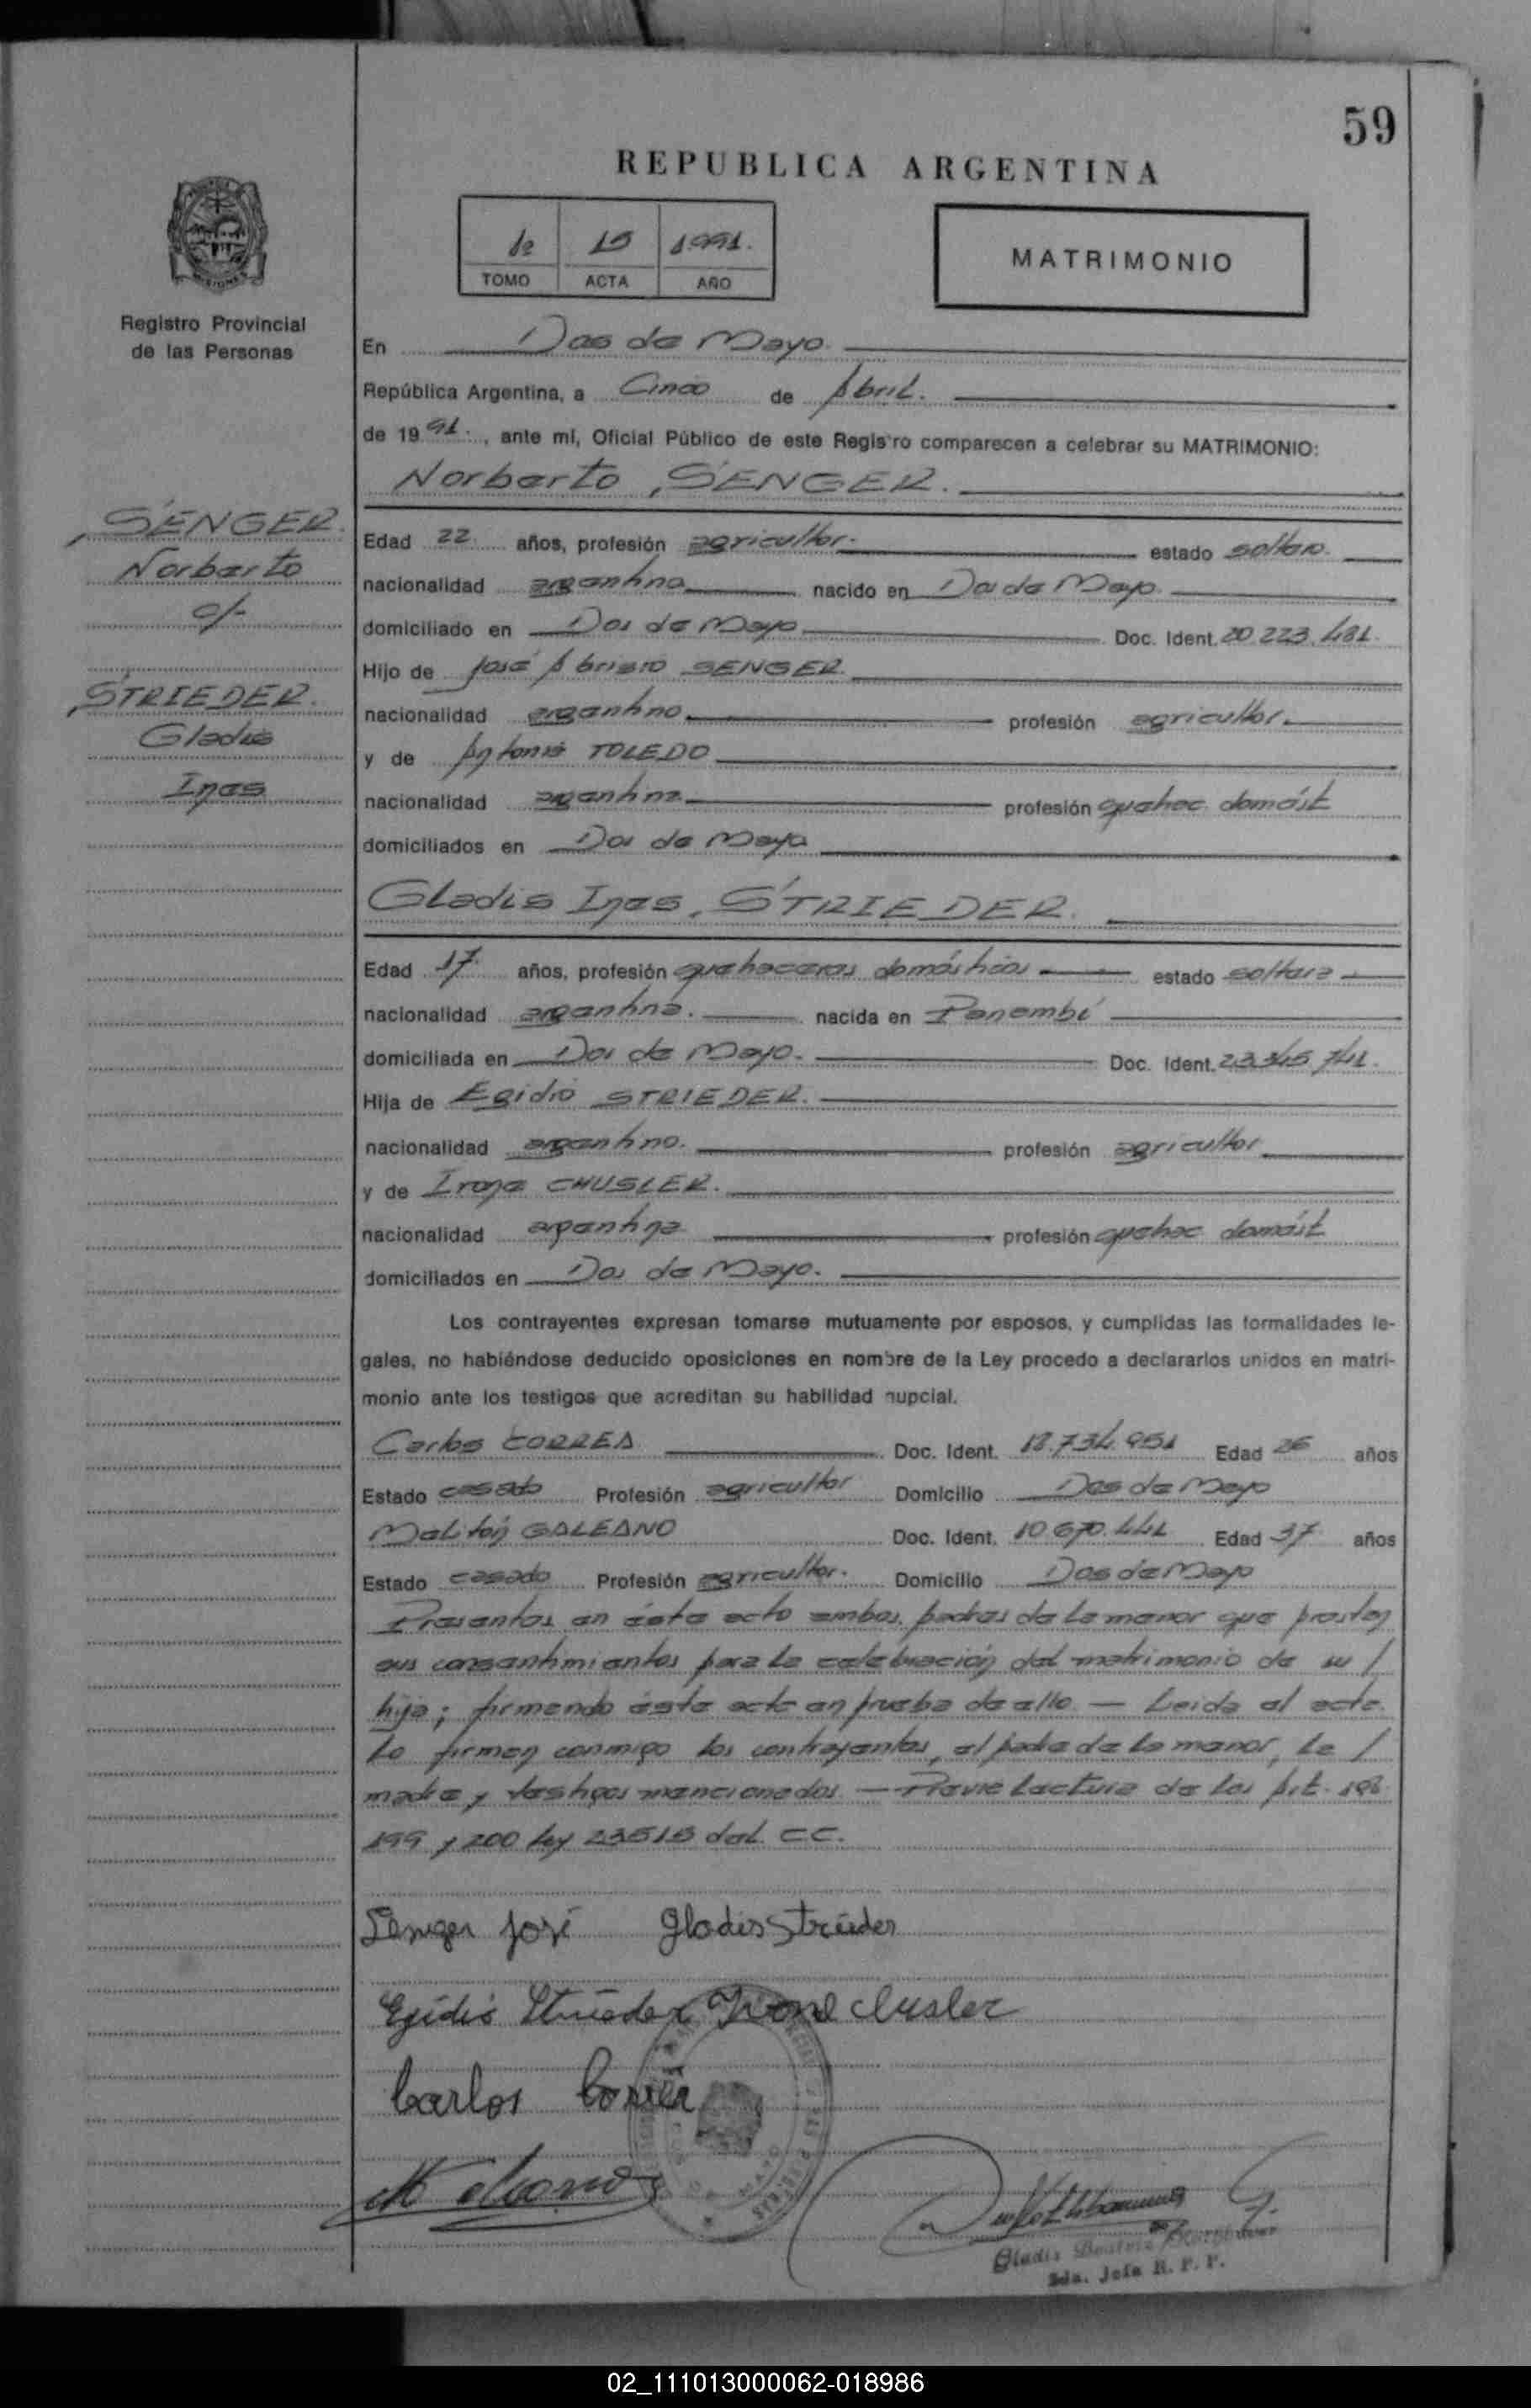 59
REPUBLICA ARGENTINA
1º 15 1991.
TOMO ACTA AÑO
MATRIMONIO
Registro Provincial
de las Personas
SENGER
Norberto
c/-
STRIEDER.
Gladis
Ines
En Dos de Mayo.
República Argentina, a Cinco de Abril.
de 1991., ante mí, Oficial Público de este Registro comparecen a celebrar su MATRIMONIO:
Norberto, SENGER.
Edad 22 años, profesión agricultor. estado soltero.
nacionalidad argentina nacido en Dos de Mayo.
domiciliado en Dos de Mayo Doc. Ident. 20.223.481.
Hijo de José SENGER.
nacionalidad argentino. profesión agricultor.
y de Antonia TOLEDO
nacionalidad argentina profesión quehac. domést
domiciliados en Dos de Mayo
Gladis Ines, STRIEDER.
Edad 17 años, profesión quehaceres domésticos estado soltera
nacionalidad argentina. nacida en Panambí
domiciliada en Dos de Mayo. Doc. Ident. 23.345.741.
Hija de Egidio STRIEDER.
nacionalidad argentino. profesión agricultor
y de Irene CHUSLER.
nacionalidad argentina profesión quehac domést
domiciliados en Dos de Mayo.
Los contrayentes expresan tomarse mutuamente por esposos, y cumplidas las formalidades le-
gales, no habiéndose deducido oposiciones en nombre de la Ley procedo a declararlos unidos en matri-
monio ante los testigos que acreditan su habilidad nupcial.
Carlos CORREA Doc. Ident. 18.734.951 Edad 26 años
Estado casado Profesión agricultor Domicilio Dos de Mayo
Melitón GALEANO Doc. Ident. 10.670.441 Edad 37 años
Estado casado Profesión agricultor. Domicilio Dos de Mayo
Presentes en éste acto ambos padres de la menor que prestan
sus consentimientos para la celebración del matrimonio de su /
hija; firmando éste acto en prueba de ello. — Leida el acta.
La firman conmigo los contrayentes, el padre de la menor, la /
madre y testigos mencionados. — Previa lectura de los Art. 198
199 y 200 Ley 23515 del C.C.
Senger José Gladis Strieder
Egidio Strieder Irone Clusler
Carlos Correa
Gladis Beatriz
Jefa R. P. P.
02_111013000062-018986